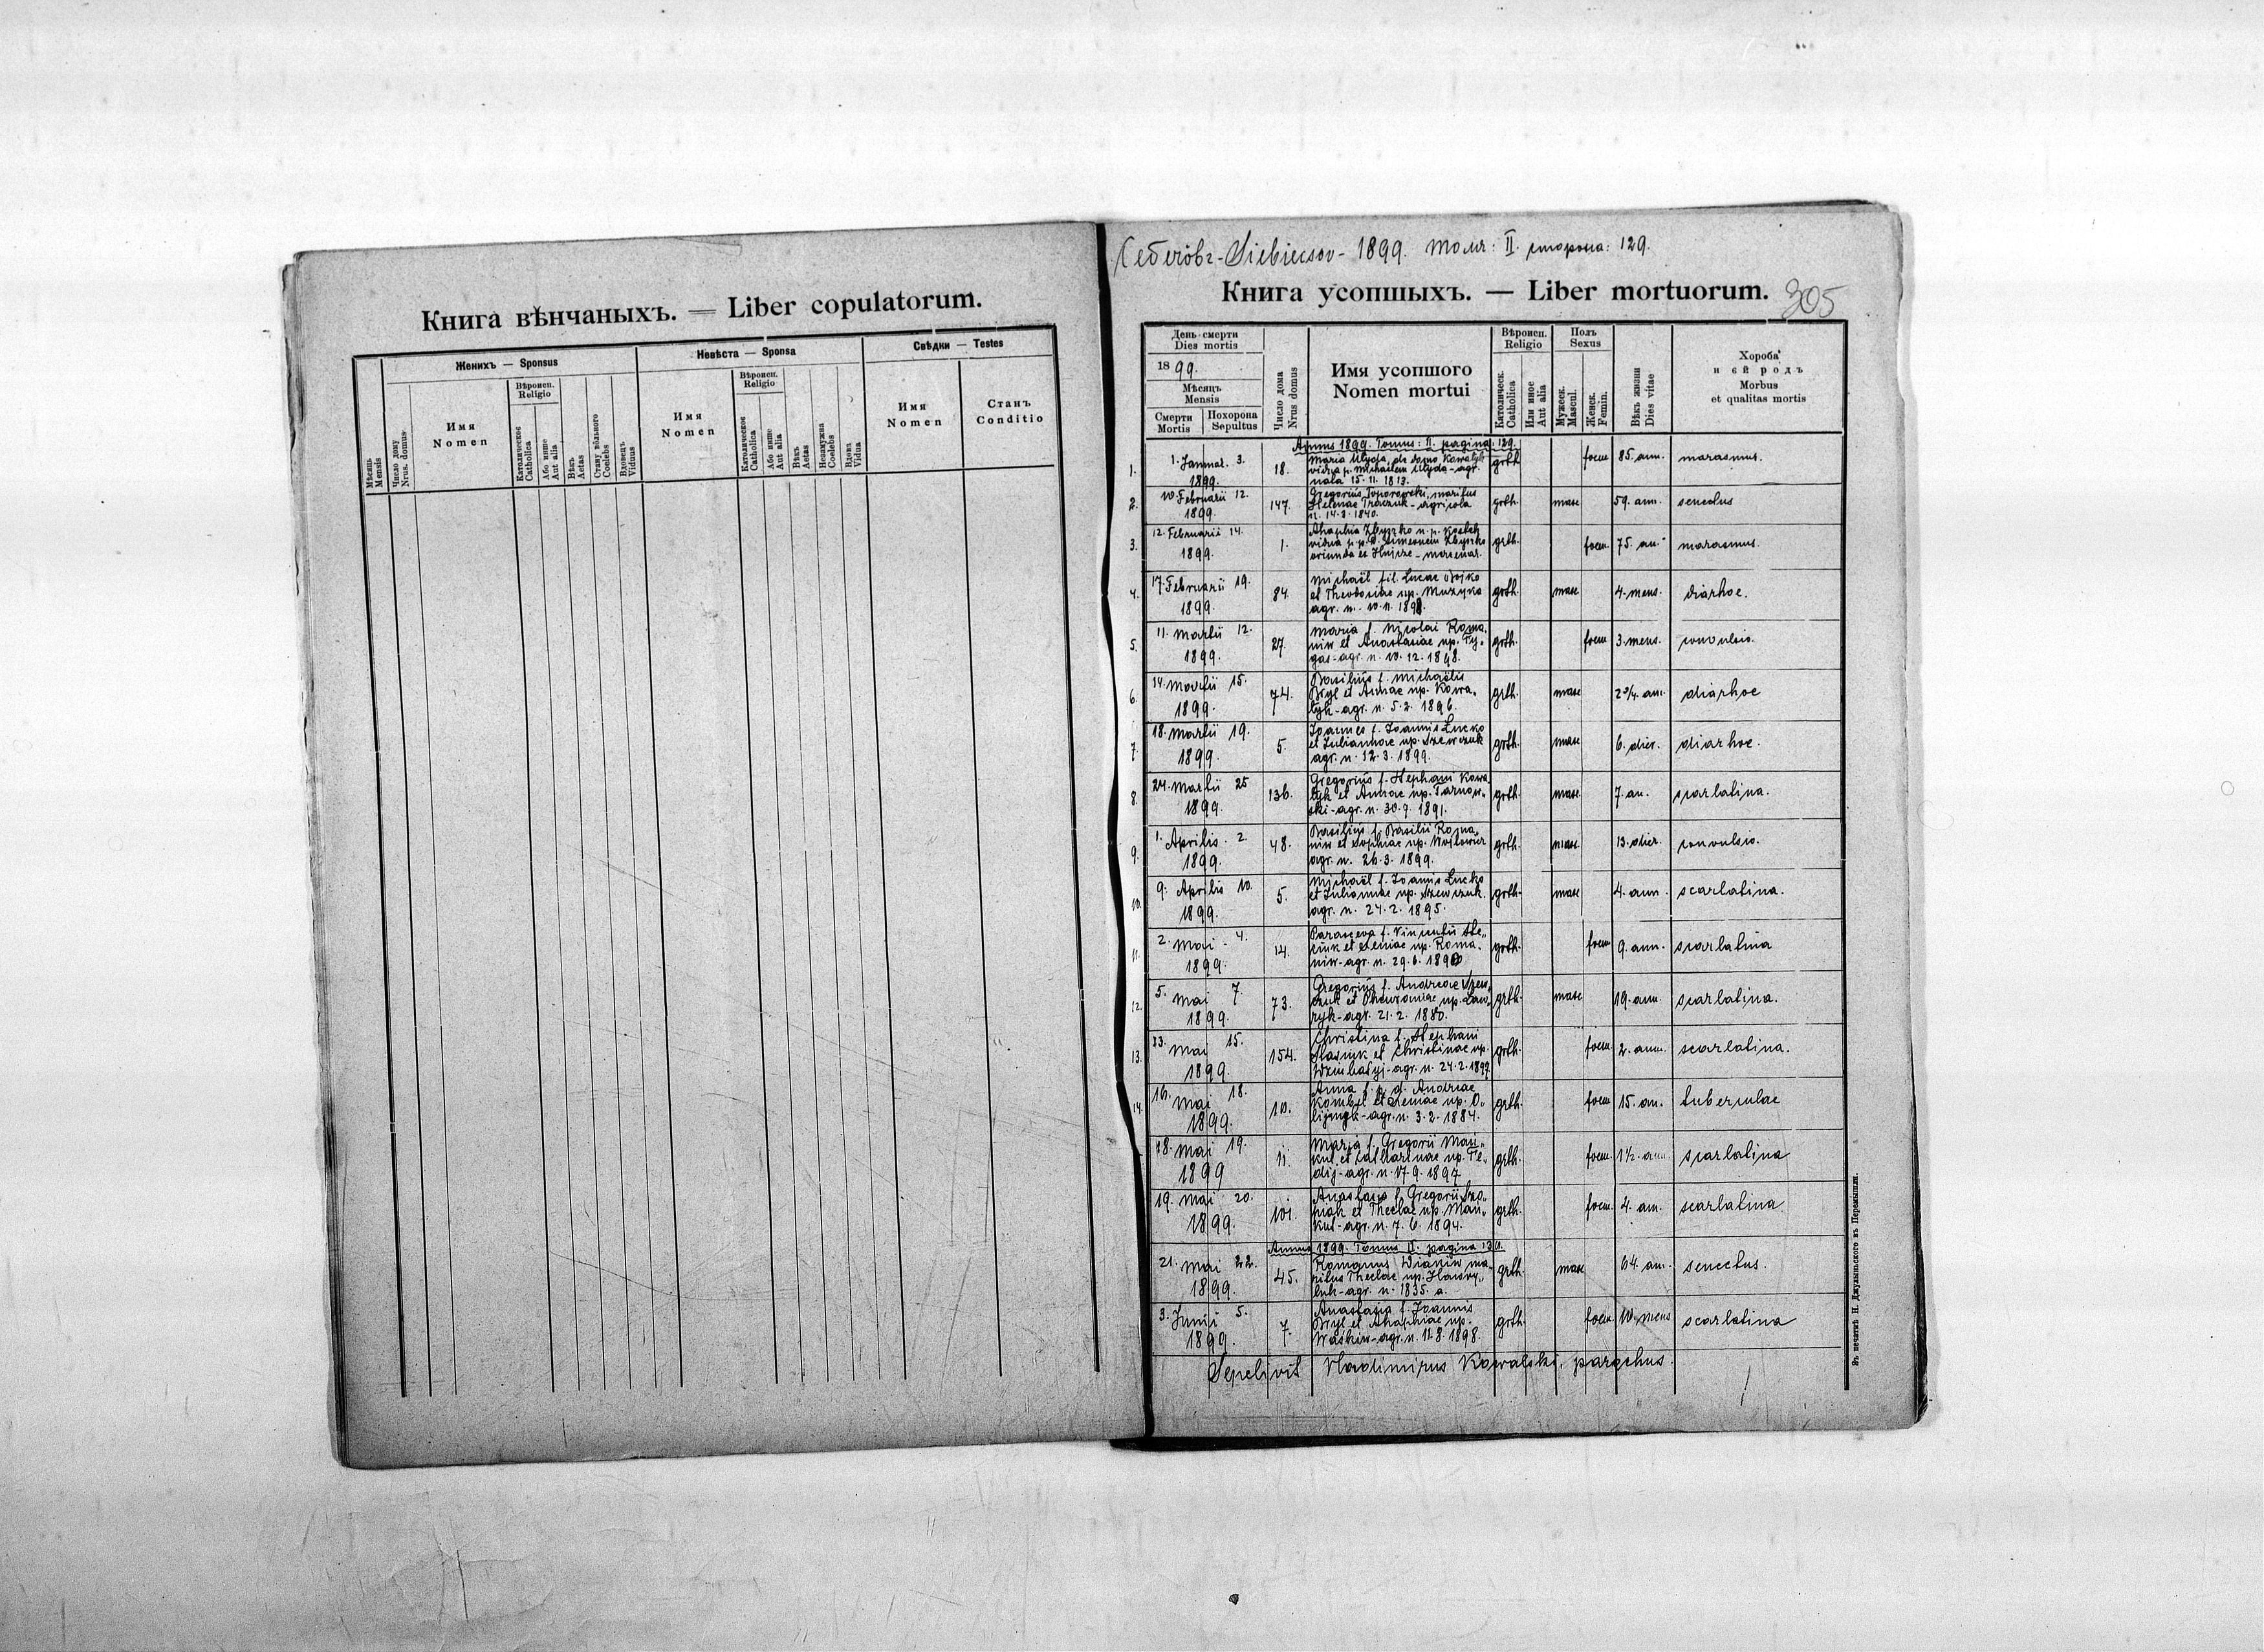 Книга вѣнчаныхъ. — Liber copulatorum.
Женихъ — Sponsus
Невѣста — Sponsa
Свѣдки — Testes
Мѣсяць
Mensis
Число дому
Nrus. domus.
Имя
Nomen
Вѣроисп.
Religio
Католическое
Catholica
Або инше
Aut alia
Вѣкъ
Aetas
Стану вольного
Coelebs
Вдовецъ
Viduus
Имя
Nomen
Вѣроисп.
Religio
Католическое
Catholica
Або инше
Aut alia
Вѣкъ
Aetas
Незамужна
Coelebs
Вдова
Vidua
Имя
Nomen
Станъ
Conditio
Себечôвъ - Siebieczov - 1899. томъ: II. сторона: 129.
Книга усопшыхъ. — Liber mortuorum. 305
День смерти
Dies mortis
1899.
Мѣсяцъ
Mensis
Смерти
Mortis
Похорона
Sepultus
Число дома
Nrus domus
Имя усопшого
Nomen mortui
Вѣроисп.
Religio
Католическ.
Catholica
Или иное
Aut alia
Полъ
Sexus
Мужеск.
Mascul.
Женск.
Femin.
Вѣкъ жизни
Dies vitae
Хороба
и єй родъ
Morbus
et qualitas mortis
Annus 1899. Tomus: II. pagina: 129.
1. 1. Januar. 3. 1899. 18. Maria Ulyda, de domo Kowalyk
vidua p. Michaelem Ulyda - agr.
nata 15. 11. 1813. grth. foem 85. ann. marasmus.
2. 10. Februarii 12. 1899. 147. Gregorius Toporowski, maritus
Helenae Traczuk - agricola
n. 14. 3. 1840. grth. masc 59. ann. senectus
3. 12. Februarii 14. 1899. 1. Ahaphia Zbyszko n. p. Kostek
vidua p. p. d. Simeonem Zbyszko
oriunda ex Hujcze - mercenar. grth. foem. 75. an. marasmus.
4. 17. Februarii 19. 1899. 84. Michaël fil. Lucae Bojko
et Theodosiae np. Muzyka
agr. n. 10. 11. 1898. grth. masc 4. mens. diarhoe.
5. 11. Martii 12. 1899. 27. Maria f. Nicolai Roma„
niw et Anastasiae np. Fy„
gas - agr. n. 10. 12. 1898. grth. foem 3. mens. convulsio.
6. 14. Martii 15. 1899. 74. Basilius f. Michaëlis
Bryl et Annae np. Kowa„
lyk - agr. n. 5. 2. 1896. grth. masc 2 3/4. ann. diarhoe
7. 18. Martii 19. 1899. 5. Joannes f. Joannis Lucko
et Juliannae np. Szewczuk
agr. n. 12. 3. 1899. grth. masc 6. dier. diarhoe.
8. 24. Martii 25 1899. 136. Gregorius f. Stephani Kowa
lyk et Annae np. Tarnow„
ski - agr. n. 30. 9. 1891. grth. masc. 7. an. scarlatina.
9. 1. Aprilis. 2 1899. 48. Basilius f. Basilii Roma„
niw et Sophiae np. Wojtowicz
agr. n. 26. 3. 1899. grth. masc. 13. dier. convulsio.
10. 9. Aprilis 10. 1899. 5. Michaël f. Joannis Lucko
et Juliannae np. Szewczuk.
agr. n. 24. 2. 1895. grth. masc 4. ann. scarlatina.
11. 2. Mai. 4. 1899. 14. Parasceva f. Vincentii Ste„
ciuk et Xeniae np. Roma„
niw - agr. n. 29. 6. 1890 grth. foem 9. ann. scarlatina
12. 5. Mai 7. 1899. 73. Gregorius f. Andreae Szew„
czuk et Pheuroniae np. Law„
ryk - agr. 21. 2. 1880. grth. masc 19. ann. scarlatina.
13. 13. Mai 15. 1899. 154. Christina f. Stephani
Stasiuk et Christinae np.
agr. n. 24. 2. 1897 grth. foem. 2. ann. scarlatina.
14. 16. Mai 18. 1899. 10. Anna f. p. d. Andreae
Kombel et Xeniae np. O„
lijnyk - agr. n. 3. 2. 1884. grth. foem 15. an. tuberculae
18. Mai 19. 1899 11. Maria f. Gregorii Man„
kut et Catharinae np. Fe„
dij - agr. n. 17. 9. 1897 grth. foem 1 1/2. ann scarlatina
19. Mai 20. 1899. 101. Anastasia f. Gregorii Szo„
piak et Theclae np. Man„
kut - agr. n. 7. 6. 1894. grth. foem. 4. ann. scarlatina
Annus 1899. Tomus II. pagina 130.
21. Mai 22. 1899. 45. Romanus Wianiw ma„
ritus Theclae np. Hawry„
luk - agr. n. 1835. a. grth. masc 64. ann. senectus.
3. Junii 5. 1899. 7. Anastasia f. Joannis
Bryl et Ahaphiae np.
Waskiw - agr. n. 11. 8. 1898. grth. foem 10. mens scarlatina
Sepelivit Vladimirus Kowalski, parochus.
Зъ печатнѣ Н. Джулыньского въ Перемышли.